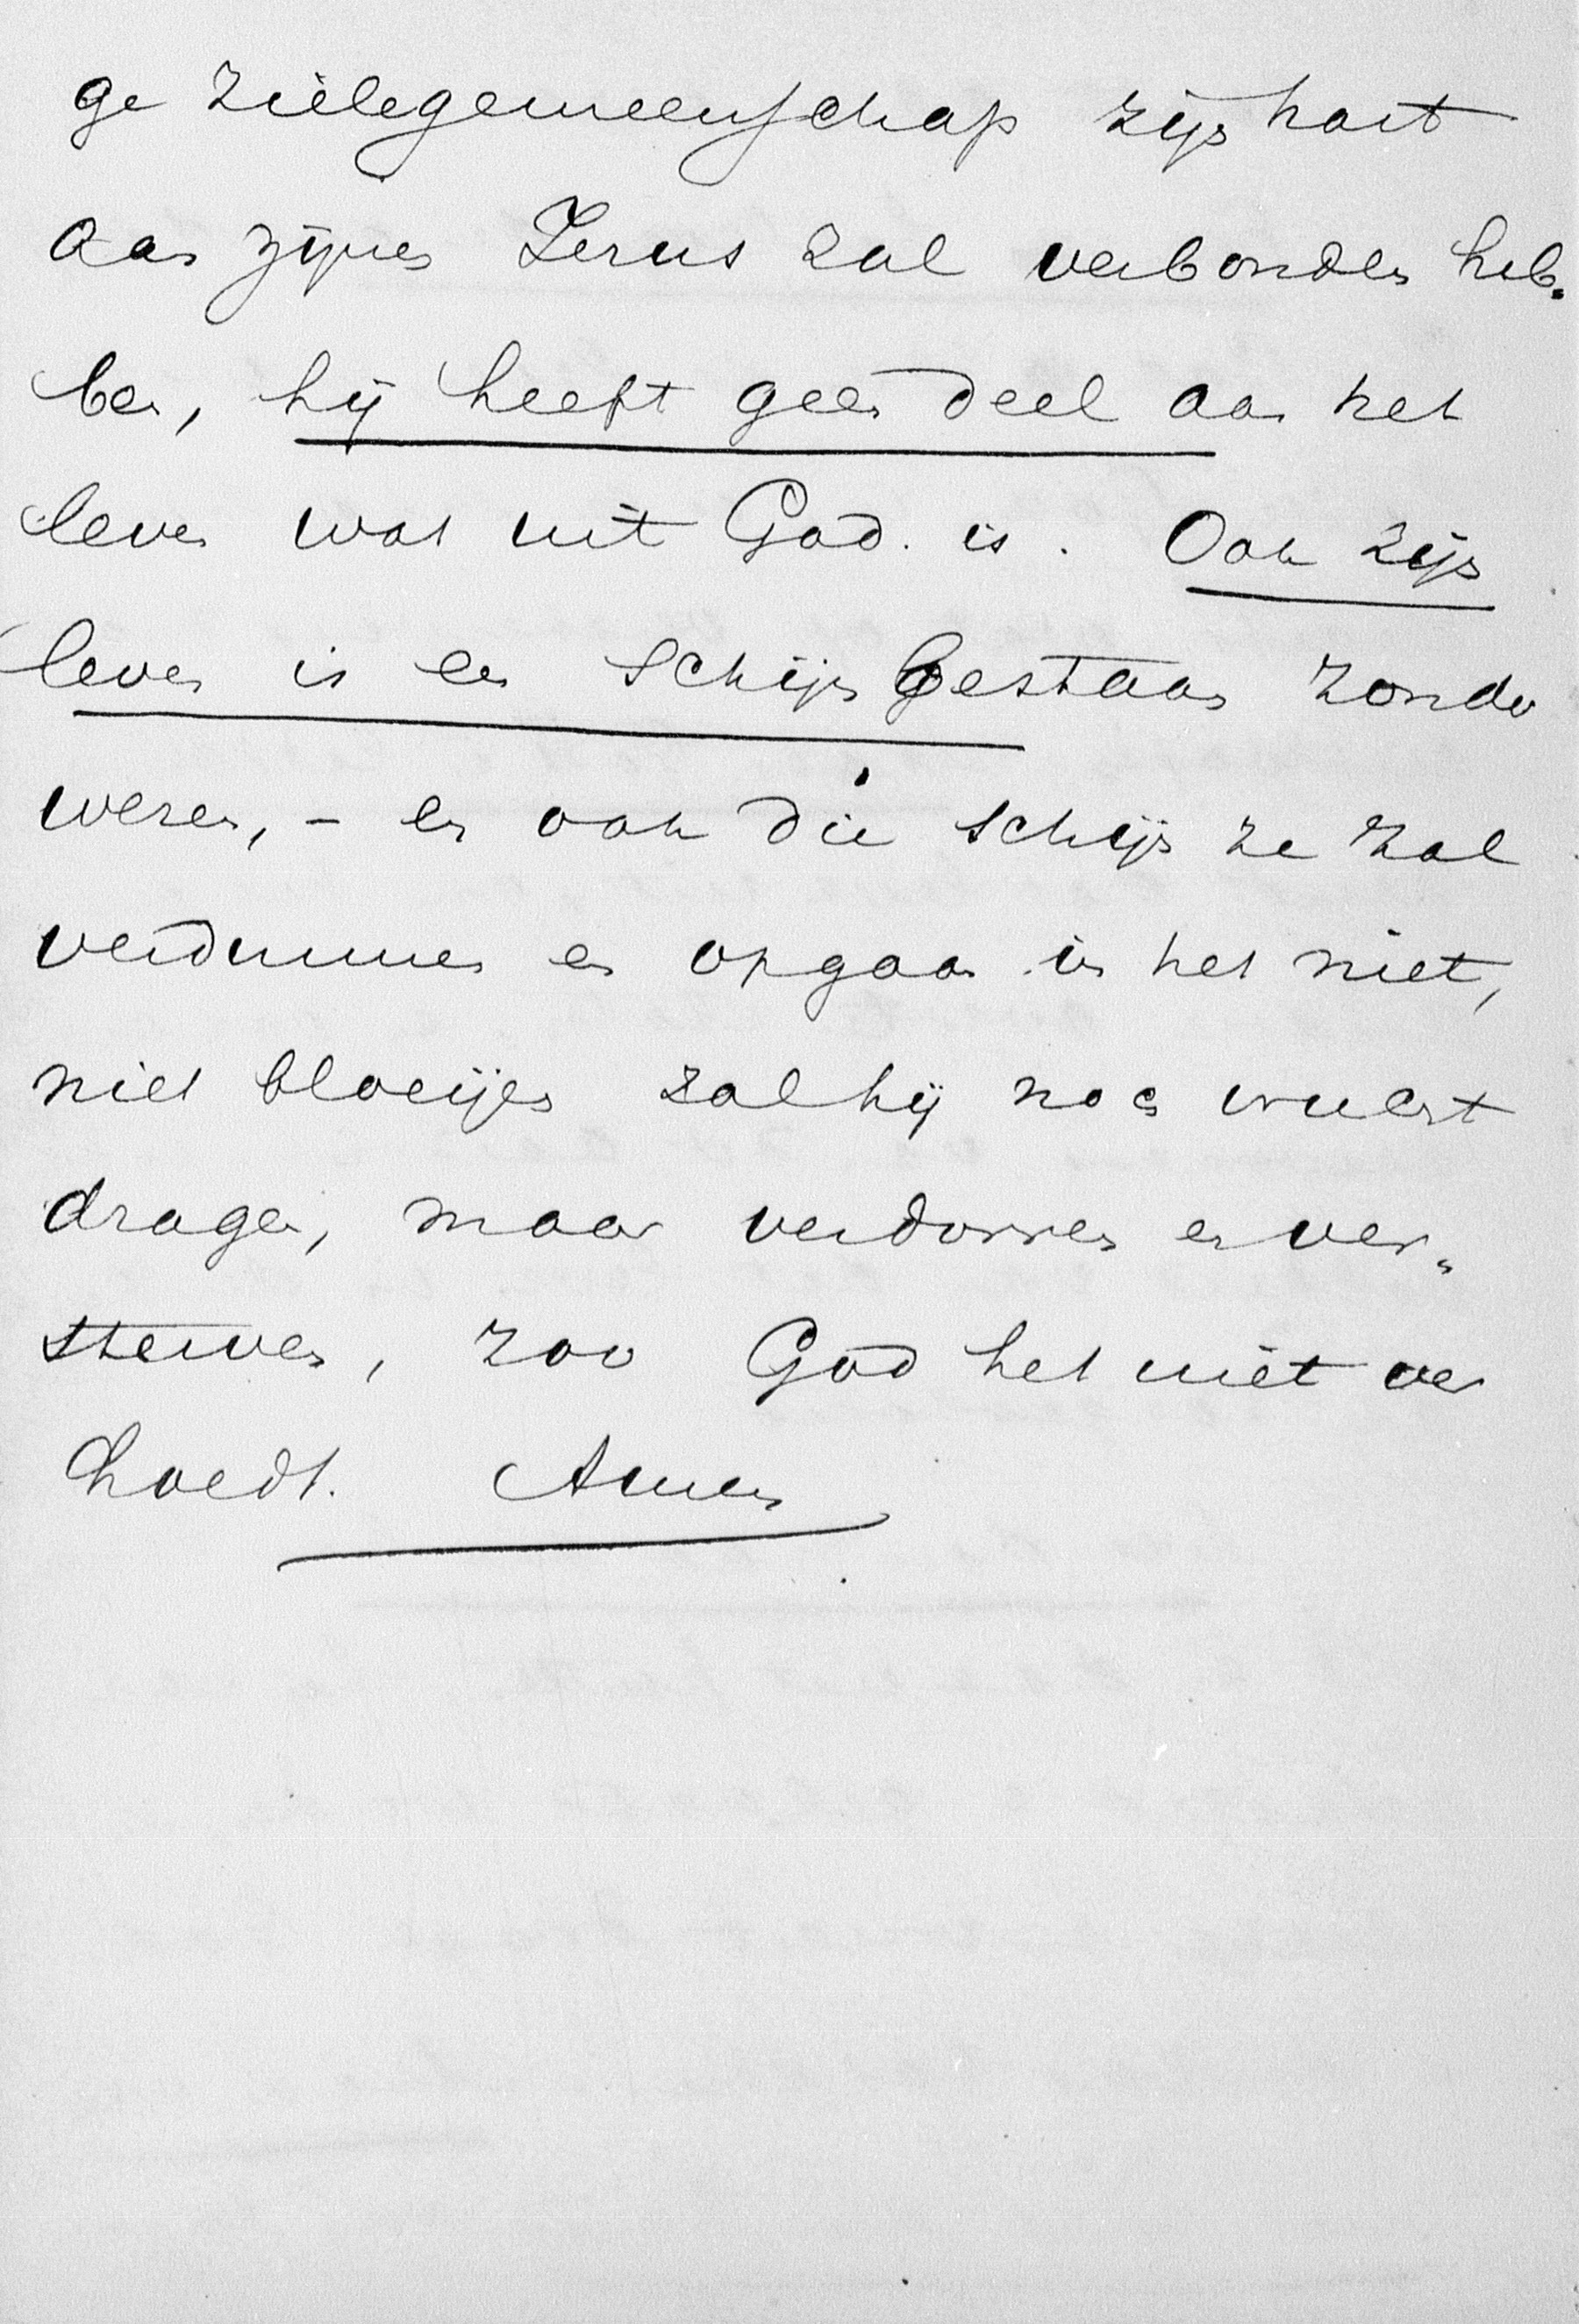 ge zielegemeenschap zijn hart
aan zijnen Jezus zal verbonden heb-
ben, hij heeft geen deel aan het
leven wat uit God is. Ook zijn
leven is een schijn bestaan zonder
wezen, - en ook die schijn ze zal
verdunnen en opgaan in het niet,
niet bloeijen zal hij noch vrucht
dragen, maar verdorren en ver-
sterven, zoo God het niet ver
hoedt. Amen